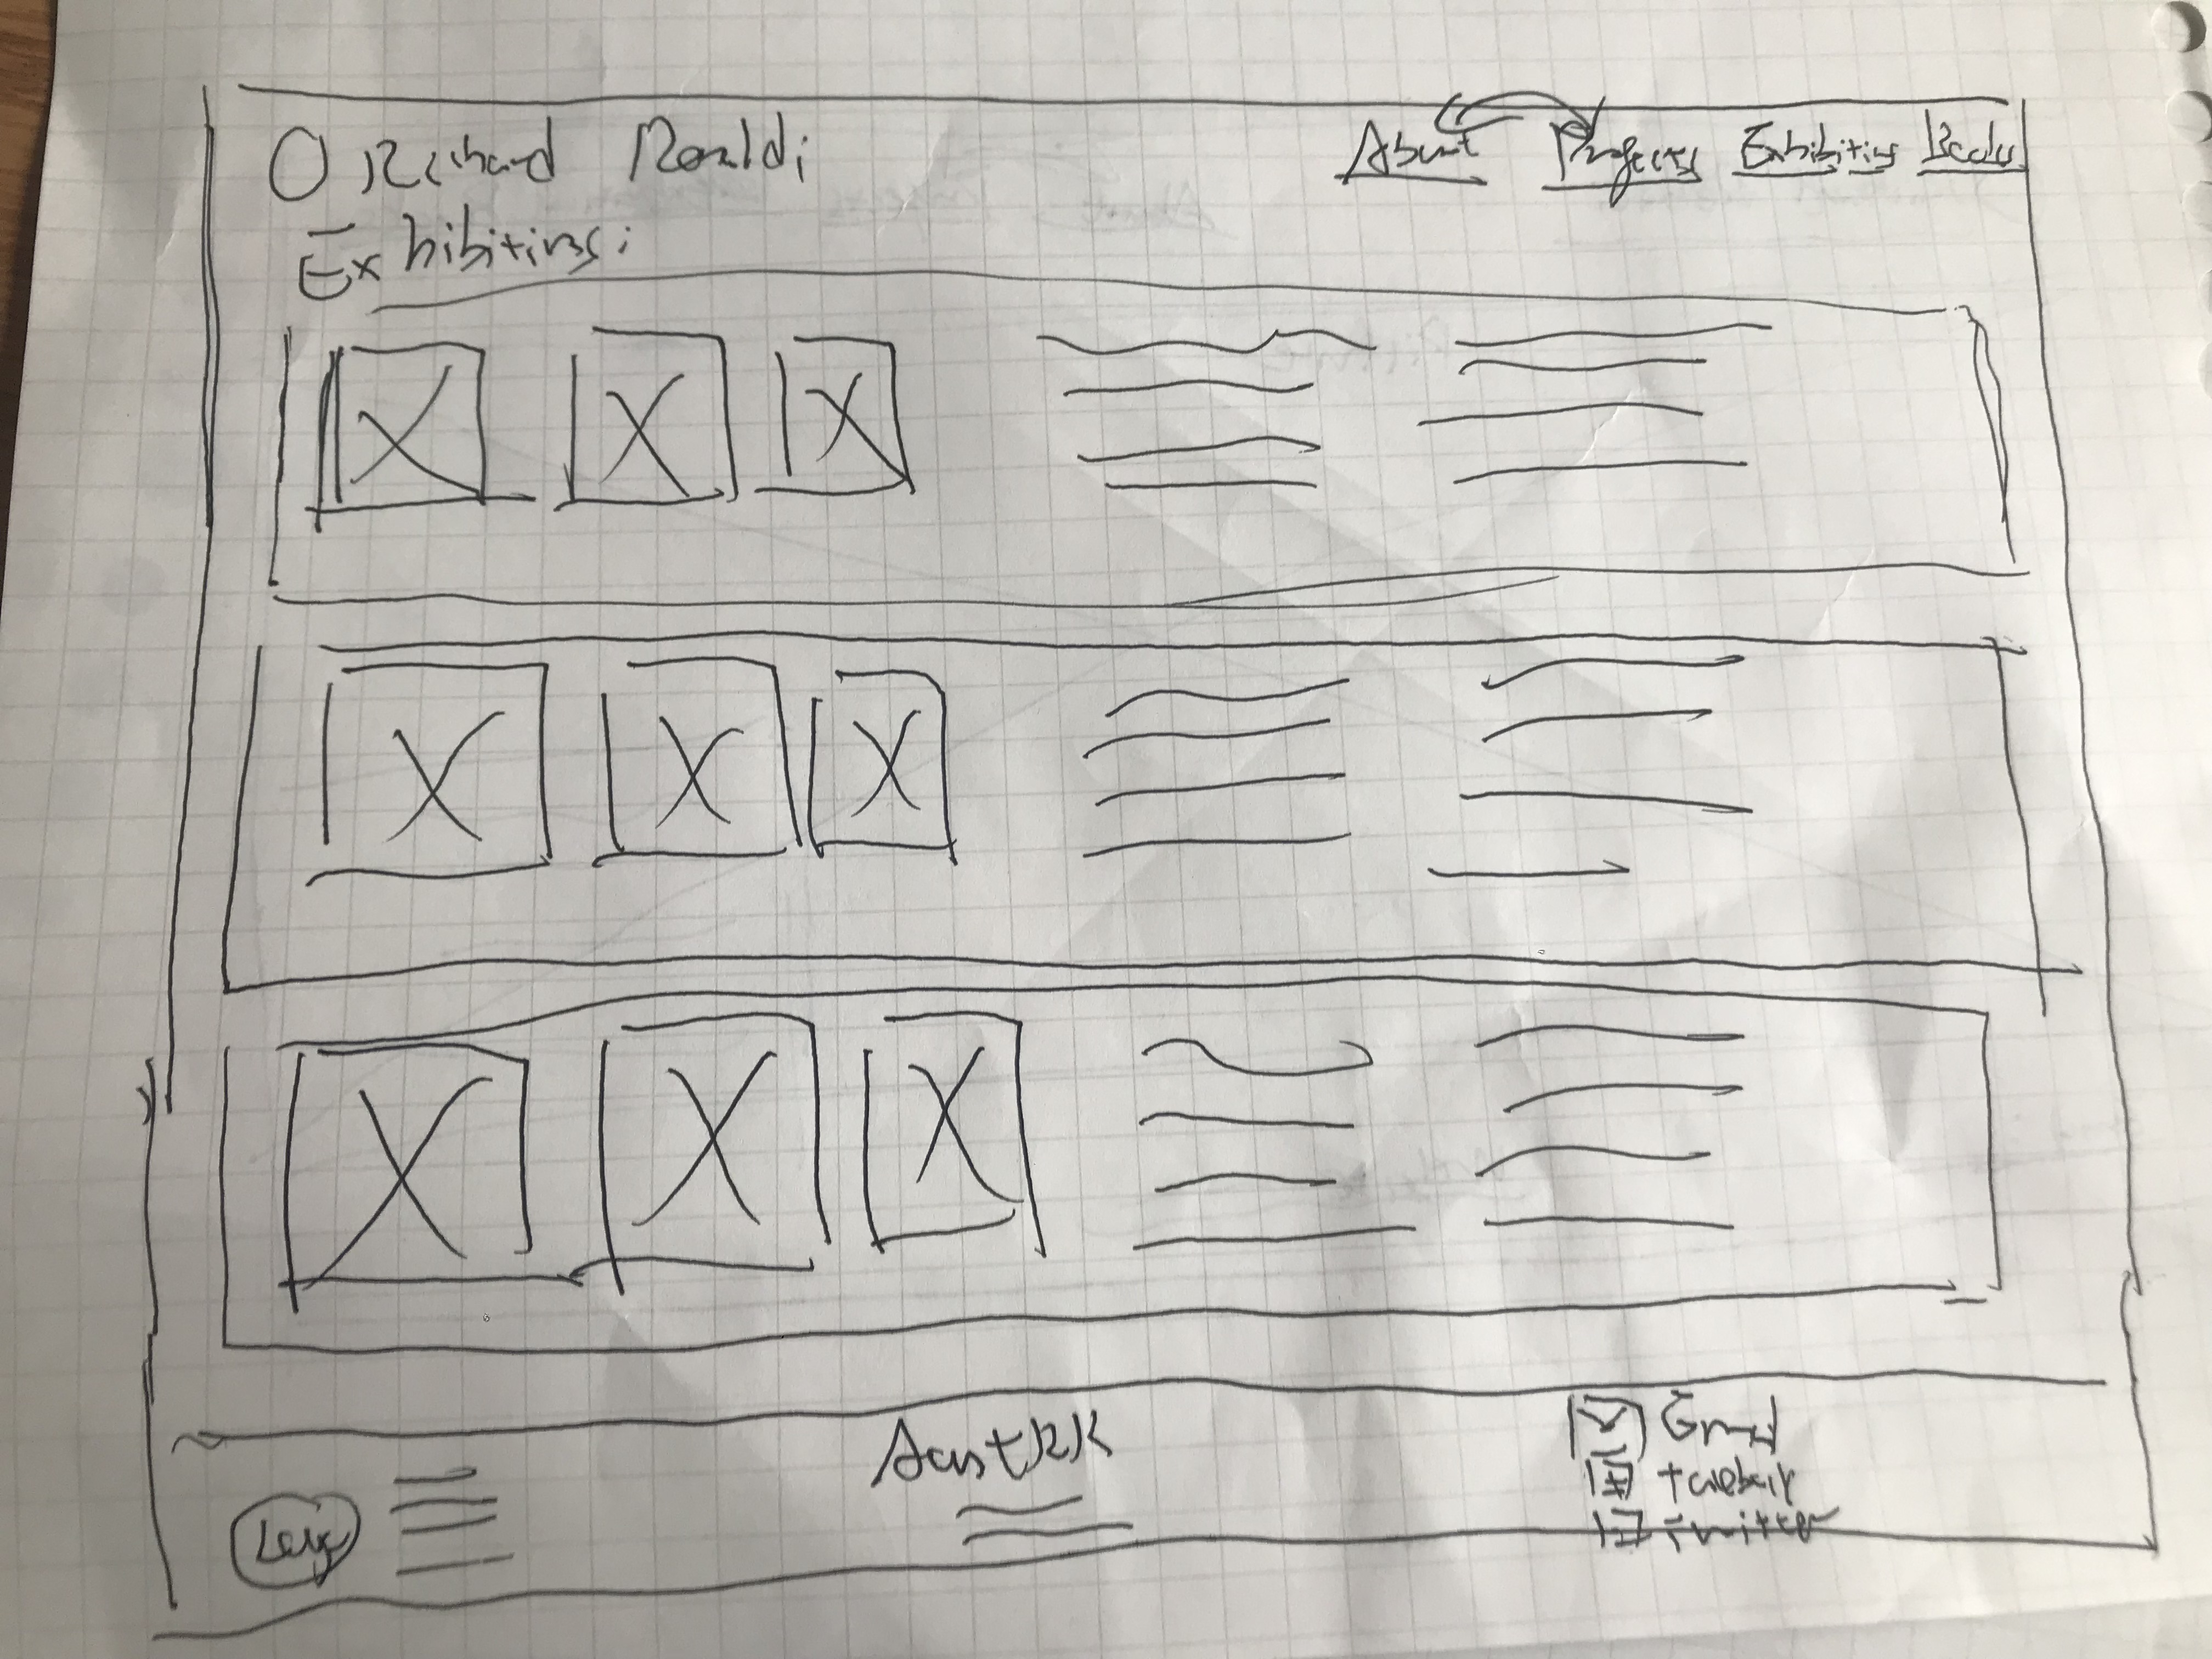 Richard Renaldi
About Projects Exhibitions Books
Exhibitions:
Email
facebook
twitter